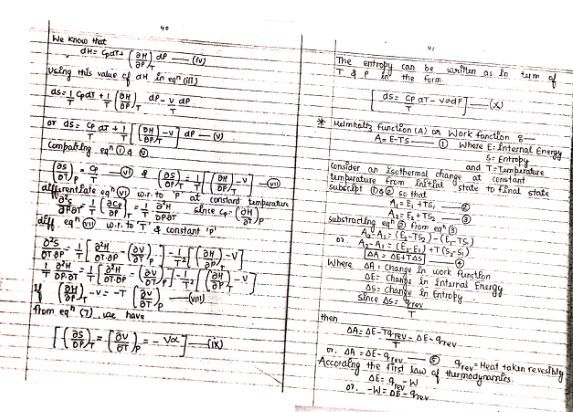 40
We know that
dH = CpdT + (∂H/∂P)T dP — (IV)
Using this value of dH in eqn (III)
ds = 1/T CpdT + 1/T (∂H/∂P)T dP - V/T dP
or ds = Cp/T dT + 1/T [(∂H/∂P)T - V] dP — (V)
Comparing eqn ① & ⑤
(∂S/∂T)P = Cp/T — (VI) & (∂S/∂P)T = 1/T [(∂H/∂P)T - V] — (VII)
differentiate eqn (VI) w.r.to 'P' at constant temperature
∂²S/∂P∂T = 1/T (∂Cp/∂P)T = 1/T ∂²H/∂P∂T since Cp = (∂H/∂T)P
diff eqn (VII) w.r.to 'T' & constant 'P'
∂²S/∂T∂P = 1/T [∂²H/∂T∂P - (∂V/∂T)P] - 1/T² [(∂H/∂P)T - V]
1/T ∂²H/∂P∂T = 1/T [∂²H/∂T∂P - (∂V/∂T)P] - 1/T² [(∂H/∂P)T - V]
(∂H/∂P)T - V = -T (∂V/∂T)P — (VIII)
from eqn (7), we have
[(∂S/∂P)T = -(∂V/∂T)P = -Vα] — (IX)
41
The entropy can be written as in term of
T & P in the form
[ds = Cp dT - VαdP] — (X)
T
* Helmholtz Function (A) or Work function :-
A = E-TS — ① Where E = Internal Energy
S = Entropy
and T = Temperature
consider an Isothermal change at constant
temperature from initial state to final state
subscript ① & ② so that
A1 = E1 - TS1 — ②
A2 = E2 - TS2 — ③
substracting eqn ② from eqn ③
A2 - A1 = (E2 - TS2) - (E1 - TS1)
or. A2 - A1 = (E2 - E1) + T(S2 - S1)
[ΔA = ΔE + TΔS] — ④
Where ΔA = Change in work function
ΔE = Change in Internal Energy
ΔS = Change in Entropy
Since ΔS = qrev/T
then
ΔA = ΔE - T qrev/T = ΔE - qrev
or. ΔA = ΔE - qrev — ⑤ qrev = Heat taken reversibly
According the first law of thermodynamics.
ΔE = qrev - W
or. -W = ΔE - qrev